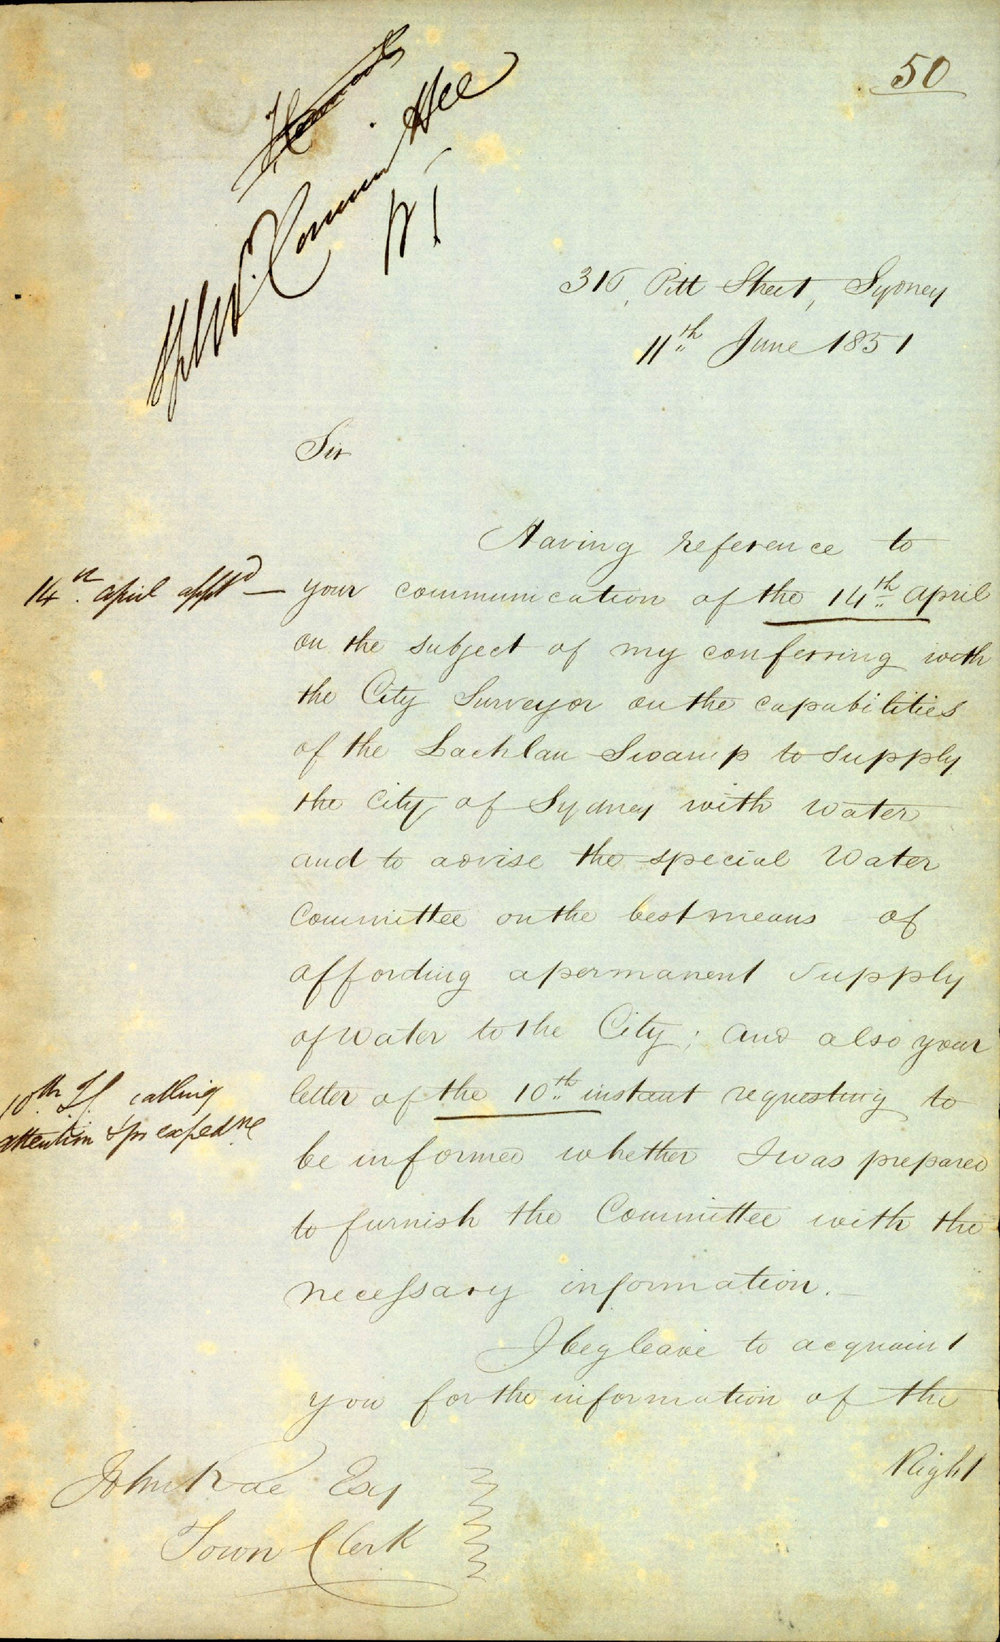 50
Spl W. Committee
316, Pitt Street, Sydney
11th June 1851
Sir
Having reference to
14th april appt'd — your communication of the 14th April
on the subject of my conferring with
the City Surveyor on the capabilities
of the Lachlan Swamp to supply
the City of Sydney with Water
and to advise the special Water
Committee on the best means of
affording a permanent Supply
of Water to the City; and also your
10th calling
attention
letter of the 10th instant requesting to
be informed whether I was prepared
to furnish the Committee with the
necessary information.—
I beg leave to acquaint
you for the information of the
Right
John Rae Esq
Town Clerk